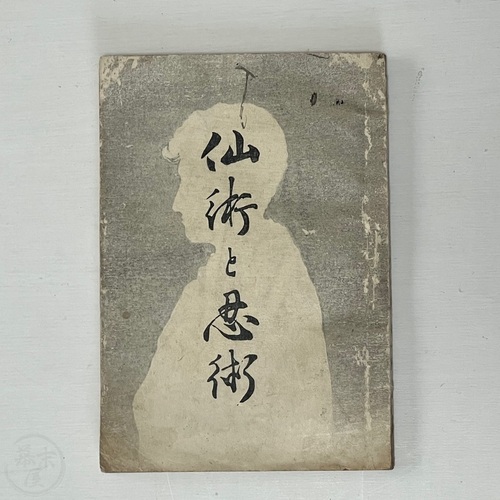 仙術と忍術